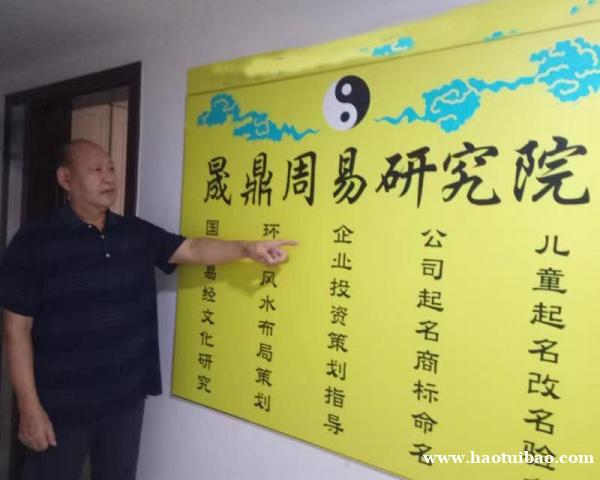 晟鼎周易研究院
国易经文化研究
环风水布局策划
企业投资策划指导
公司起名商标命名
儿童起名改名验
www.haotuibao.com